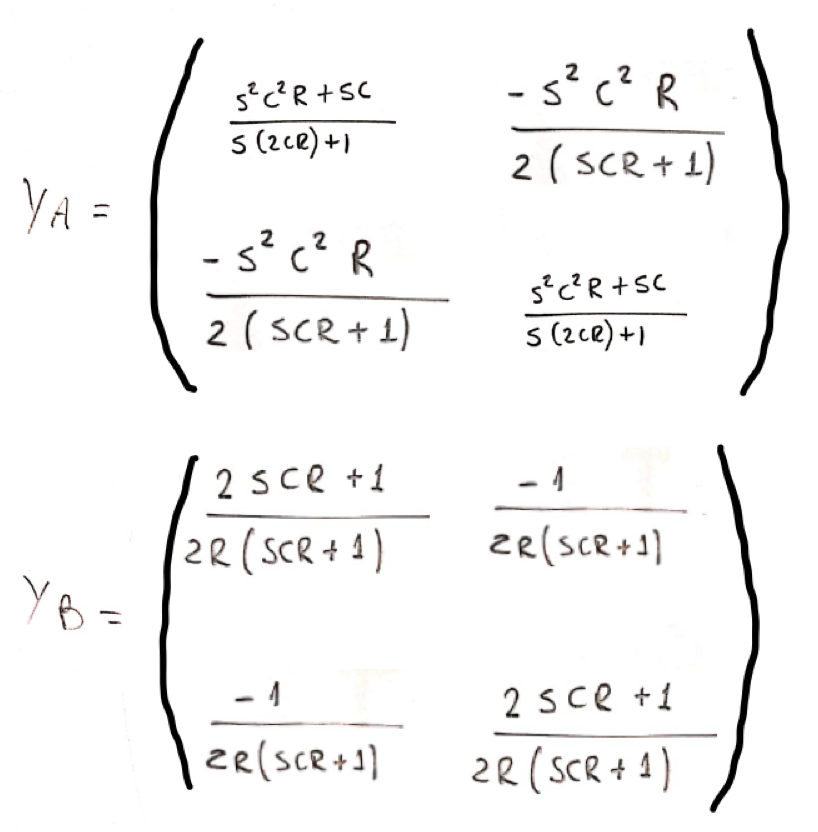 YA = ( (s²c²R + sc) / (s(2CR)+1)    (- s² c² R) / (2(SCR + 1)) )
( (- s² c² R) / (2(SCR + 1))    (s²c²R + sc) / (s(2CR)+1) )
YB = ( (2 SCR + 1) / (2R(SCR + 1))    (-1) / (2R(SCR+1)) )
( (-1) / (2R(SCR+1))    (2 SCR + 1) / (2R(SCR + 1)) )